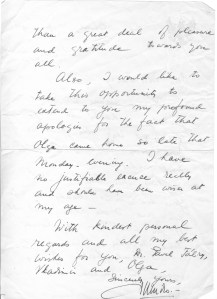 than a great deal of pleasure
and gratitude towards you
all.
Also, I would like to
take this opportunity to
extend to you my profound
apologies for the fact that
Olga came home so late that
Monday evening. I have
no justifiable excuse really
and should have been wiser at
my age —
With kindest personal
regards and all my best
wishes for you, Dr.
and Olga
Sincerely Yours,